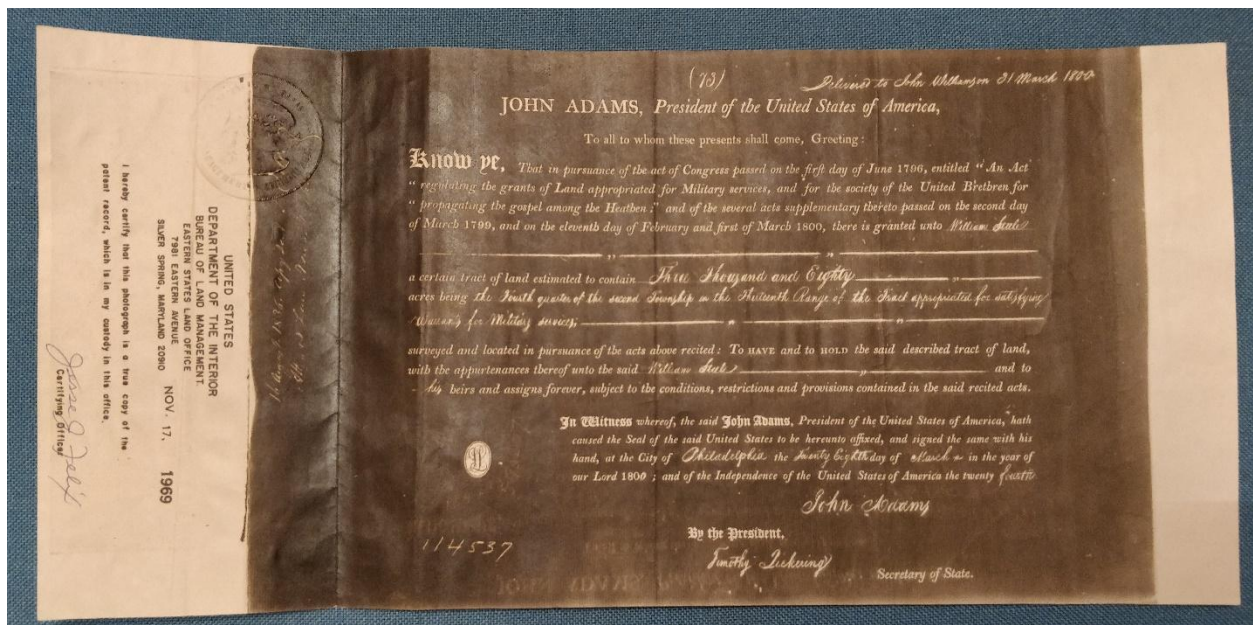 (73)
Delivered to John Williamson 31 March 1800
JOHN ADAMS, President of the United States of America,
To all to whom these presents shall come, Greeting:
Know ye, That in pursuance of the act of Congress passed on the first day of June 1796, entitled "An Act
"regulating the grants of Land appropriated for Military services, and for the society of the United Brethren for
"propagating the gospel among the Heathen;" and of the several acts supplementary thereto passed on the second day
of March 1799, and on the eleventh day of February and first of March 1800, there is granted unto William Steele
a certain tract of land estimated to contain Three Thousand and Eighty
acres being the Fourth quarter of the second Township in the Thirteenth Range of the Tract appropriated for satisfying
Warrants for Military services;
surveyed and located in pursuance of the acts above recited: TO HAVE and to HOLD the said described tract of land,
with the appurtenances thereof unto the said William Steele and to
his heirs and assigns forever, subject to the conditions, restrictions and provisions contained in the said recited acts.
In Witness whereof, the said John Adams, President of the United States of America, hath
caused the Seal of the said United States to be hereunto affixed, and signed the same with his
hand, at the City of Philadelphia the Twenty Eighth day of March in the year of
our Lord 1800; and of the Independence of the United States of America the twenty fourth
John Adams
By the President,
Timothy Pickering
Secretary of State.
114537
UNITED STATES
DEPARTMENT OF THE INTERIOR
BUREAU OF LAND MANAGEMENT
EASTERN STATES LAND OFFICE
7981 EASTERN AVENUE
SILVER SPRING, MARYLAND 20910
NOV. 17. 1969
I hereby certify that this photograph is a true copy of the
patent record, which is in my custody in this office.
Certifying Officer